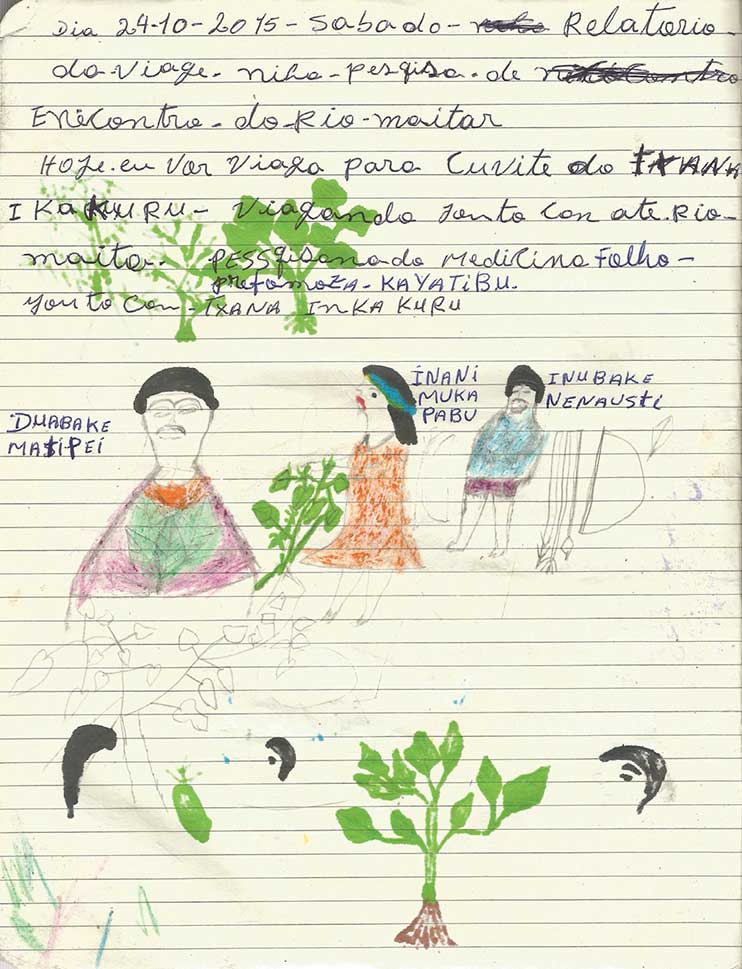 Dia 24-10-2015 - Sabado - Relatorio -
do - viage - niha - pesqisa - de
Enicontro - do - Rio - maitar
HOJE. eu Vor Viaga para Cuvite do TXANA
IKAKURU - Viagando Jonto Con ate. Rio -
maito. PESSqisanado medicina Folho -
prefomoza - KAYATiBU.
Jonto Con - TXANA INKA KURU
DUABAKE
MATSIPEI
INANI
MUKA
PABU
INUBAKE
NENAUSti